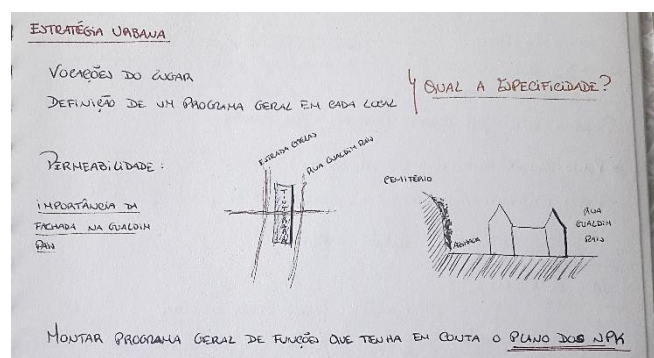 ESTRATÉGIA URBANA
VOCAÇÕES DO LUGAR
DEFINIÇÃO DE UM PROGRAMA GERAL EM CADA LOCAL
QUAL A ESPECIFICIDADE?
PERMEABILIDADE:
IMPORTÂNCIA DA
FACHADA NA GUALDIM
PAIS
ESTRADA CHELAS
RUA GUALDIM PAIS
CEMITÉRIO
RUA
GUALDIM
PAIS
MONTAR PROGRAMA GERAL DE FUNÇÕES QUE TENHA EM CONTA O PLANO DOS NPK